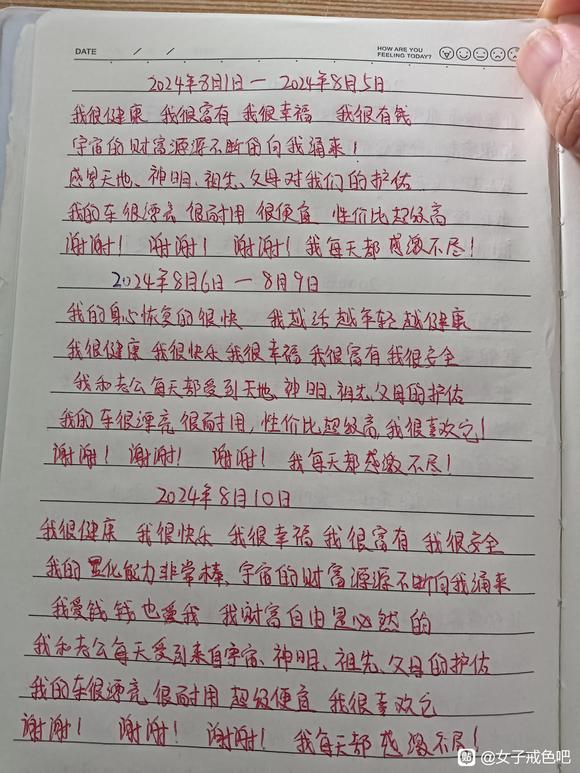 DATE / /
HOW ARE YOU
FEELING TODAY?
2024年8月1日一 2024年8月5日
我很健康 我很富有 我很幸福 我很有钱
宇宙的财富源源不断的向我涌来!
感恩天地、神明、祖先、父母对我们的护佑
我的车很漂亮 很耐用 很便宜 性价比超级高
谢谢! 谢谢! 谢谢! 我每天都感激不尽!
2024年8月6日一8月9日
我的身心恢复的很快 我越活越年轻越健康
我很健康 我很快乐 我很幸福 我很富有 我很安全
我和老公每天都受到天地、神明、祖先、父母的护佑
我的车很漂亮 很耐用,性价比超级高,我很喜欢它!
谢谢! 谢谢! 谢谢! 我每天都感激不尽!
2024年8月10日
我很健康 我很快乐 我很幸福 我很富有 我很安全
我的显化能力非常棒、宇宙的财富源源不断向我涌来
我爱钱钱也爱我 我财富自由是必然的
我和老公每天受到来自宇宙、神明、祖先、父母的护佑
我的车很漂亮 很耐用 超级便宜 我很喜欢它
谢谢! 谢谢! 谢谢! 我每天都感激不尽!
贴 @女子戒色吧